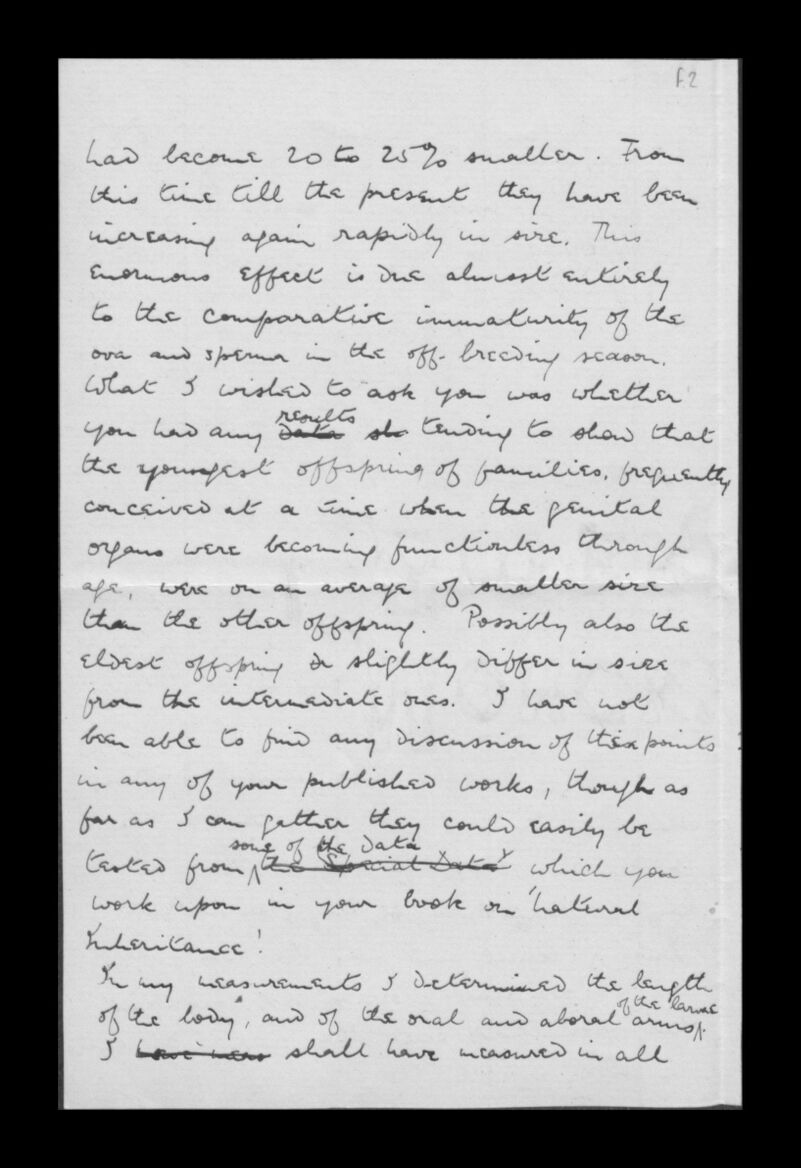 f.2
had become 20 to 25% smaller. From
this time till the present they have been
increasing again rapidly in size. This
enormous effect is due almost entirely
to the comparative immaturity of the
ova and sperma in the off-breeding season.
What I wished to ask you was whether
you had any data results sh tending to show that
the youngest offspring of families, frequently
conceived at a time when the genital
organs were becoming functionless through
age, were on an average of smaller size
than the other offspring. Possibly also the
eldest offspring slightly differ in size
from the intermediate ones. I have not
been able to find any discussion of these points
in any of your published works, though as
far as I can gather they could easily be
tested from the Special Data some of the data which you
work upon in your book on 'Natural
Inheritance'.
In my measurements I determined the length
of the body, and of the oral and aboral arms of the larvae.
I have meas shall have measured in all